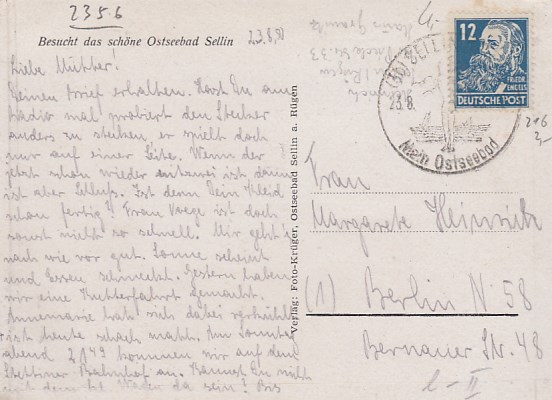 2356
Besucht das schöne Ostseebad Sellin 23.8.50
Liebe Mutter!
Deinen Brief erhalten. Hast Du am
Radio mal probiert den Stecker
anders zu stecken er spielt doch
nur auf einer Seite. Wenn der
jetzt schon wieder entzwei ist dann
ist aber Schluß. Ist denn Dein Kleid
schon fertig? Frau Voege ist doch
sonst nicht so schnell. Mir geht's
nach wie vor gut. Sonne scheint
und Essen schmeckt. Gestern haben
wir eine Kutterfahrt gemacht.
Annemarie hat sich dabei erkältet
ist heute schach matt. Am Sonnabend
abend 2149 kommen wir auf dem
Stettiner Bahnhof an. Kannst Du nicht
da sein? Bis
Verlag: Foto-Krüger, Ostseebad Sellin a. Rügen
12
FRIEDR. ENGELS
DEUTSCHE POST
SELLIN
23.8.
Mein Ostseebad
216
2,-
Frau
Margarete Heinrich
(1) Berlin N 58
Bernauer Str. 48
l-II